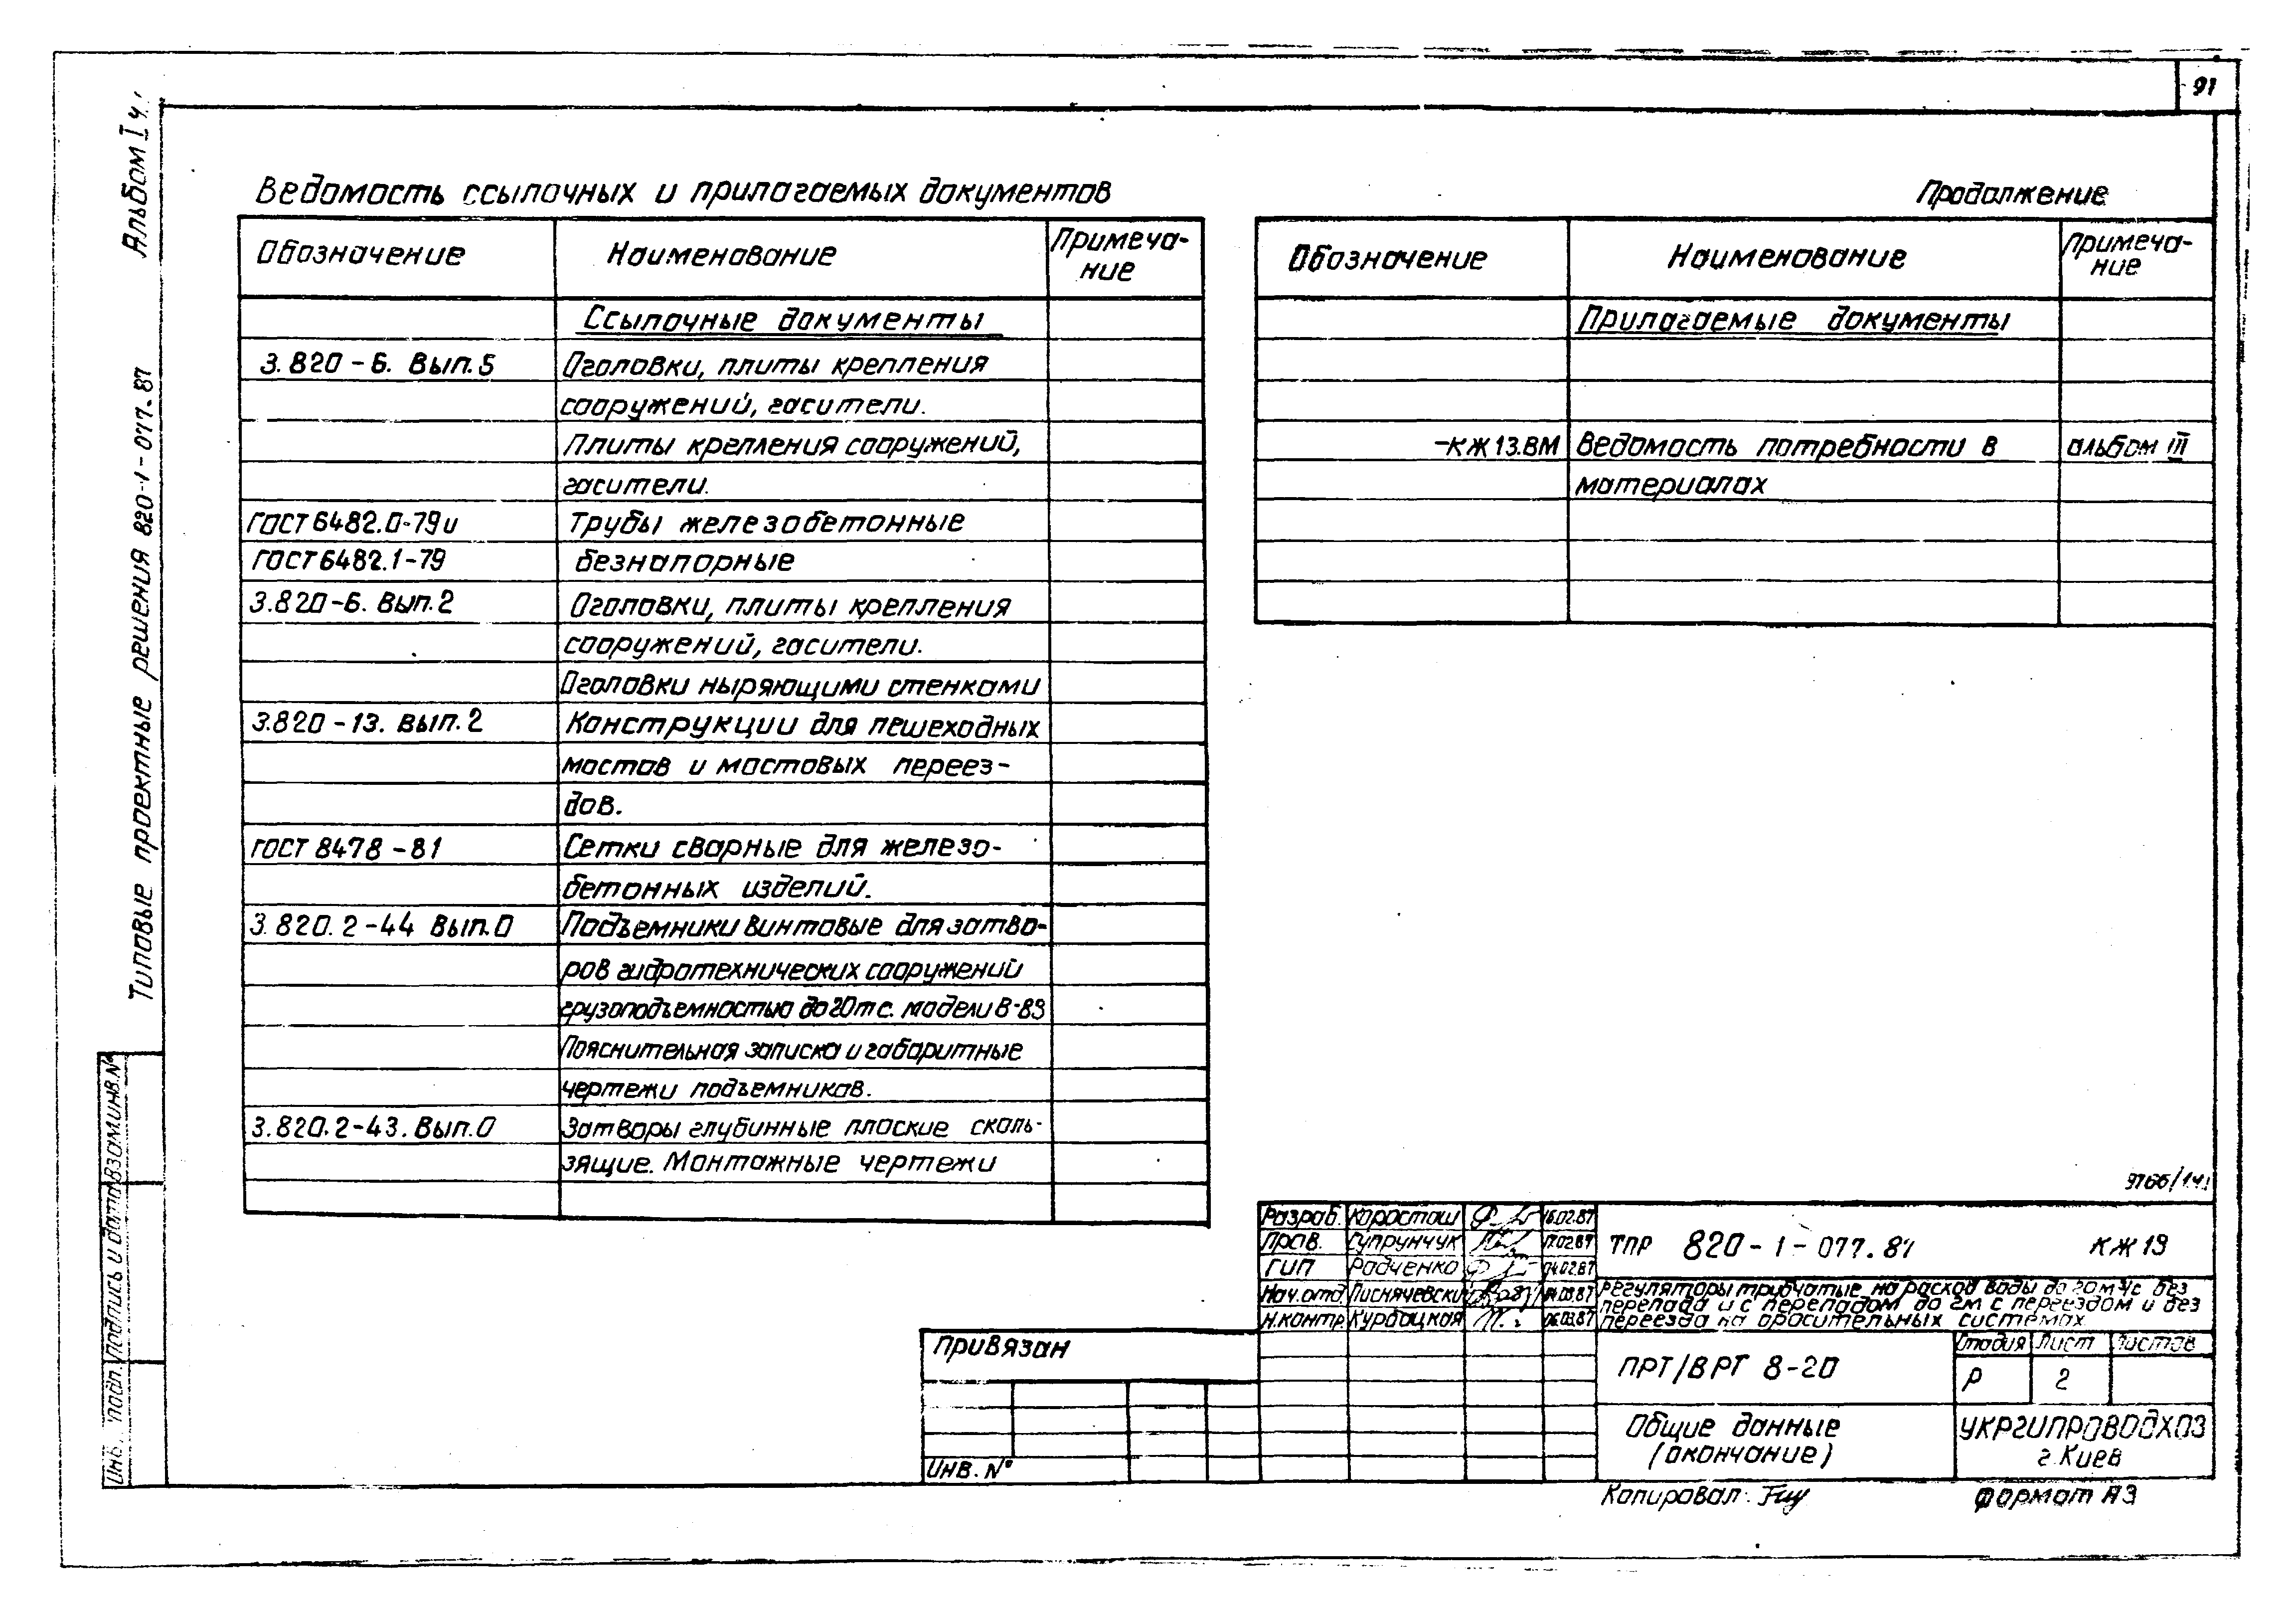 91
Альбом I ч.1
Типовые проектные решения 820-1-077.87
Ведомость ссылочных и прилагаемых документов
Обозначение Наименование Примеча-
ние
Ссылочные документы
3.820-6. Вып.5 Оголовки, плиты крепления
сооружений, гасители.
Плиты крепления сооружений,
гасители.
ГОСТ 6482.0-79 и Трубы железобетонные
ГОСТ 6482.1-79 безнапорные
3.820-6. Вып.2 Оголовки, плиты крепления
сооружений, гасители.
Оголовки ныряющими стенками
3.820-13. Вып.2 Конструкции для пешеходных
мостов и мостовых переез-
дов.
ГОСТ 8478-81 Сетки сварные для железо-
бетонных изделий.
3.820.2-44 Вып.0 Подъемники винтовые для затво-
ров гидротехнических сооружений
грузоподъемностью до 20тс. модели В-89
Пояснительная записка и габаритные
чертежи подъемников.
3.820.2-43. Вып.0 Затворы глубинные плоские сколь-
зящие. Монтажные чертежи
Продолжение
Обозначение Наименование Примеча-
ние
Прилагаемые документы
-КЖ13.ВМ Ведомость потребности в альбом III
материалах
Разраб. Коросташ 16.02.87
Пров. Супрунчук 17.02.87
ГИП Радченко 04.02.87
Нач.отд.
Н.контр. Курбацкая 06.03.87
ТПР 820-1-077.87 КЖ13
Регуляторы трубчатые на расход воды до 20м³/с без
перепада и с перепадом до 2м с переездом и без
переезда на оросительных системах
Привязан
Инв. №
ПРТ/ВРТ 8-20
Стадия Лист Листов
Р 2
Общие данные
(окончание)
УКРГИПРОВОДХОЗ
г. Киев
Копировал:
Формат А3
Инв. № подл. Подпись и дата Взам.инв.№